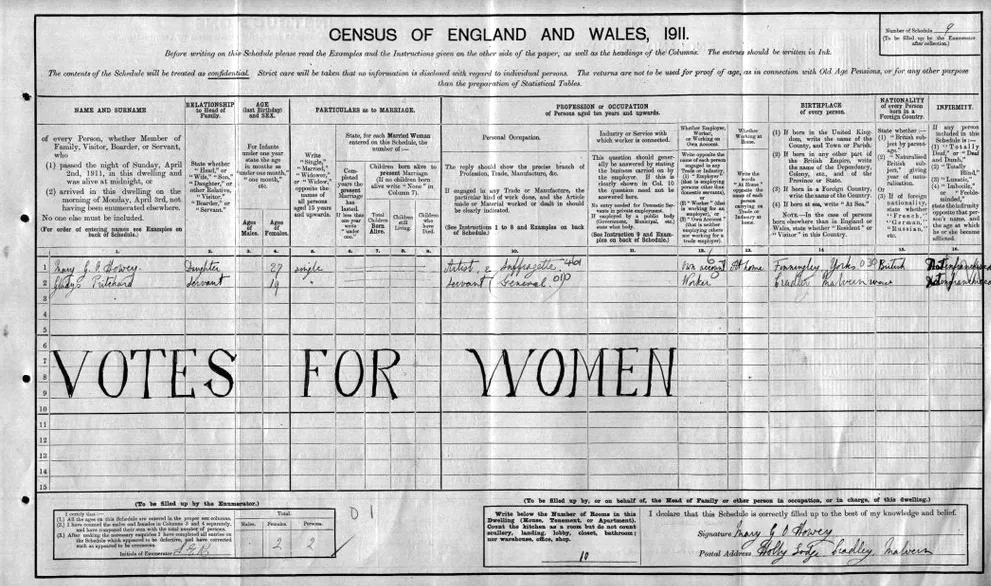 CENSUS OF ENGLAND AND WALES, 1911.
Number of Schedule 9
(To be filled up by the Enumerator after collection.)
Before writing on this Schedule please read the Examples and the Instructions given on the other side of the paper, as well as the headings of the Columns. The entries should be written in Ink.
The contents of the Schedule will be treated as confidential. Strict care will be taken that no information is disclosed with regard to individual persons. The returns are not to be used for proof of age, as in connection with Old Age Pensions, or for any other purpose
than the preparation of Statistical Tables.
NAME AND SURNAME
of every Person, whether Member of
Family, Visitor, Boarder, or Servant,
who
(1) passed the night of Sunday, April
2nd, 1911, in this dwelling and
was alive at midnight, or
(2) arrived in this dwelling on the
morning of Monday, April 3rd, not
having been enumerated elsewhere.
No one else must be included.
(For order of entering names see Examples on
back of Schedule.)
RELATIONSHIP
to Head of
Family.
State whether
"Head," or
"Wife," "Son,"
"Daughter," or
other Relative,
"Visitor,"
"Boarder," or
"Servant."
AGE
(last Birthday)
and SEX.
For Infants
under one year
state the age
in months as
"under one month,"
"one month,"
etc.
Ages of Males.
Ages of Females.
PARTICULARS as to MARRIAGE.
Write
"Single,"
"Married,"
"Widower,"
or "Widow,"
opposite the
names of all
persons aged
15 years and
upwards.
State, for each Married Woman
entered on this Schedule, the
number of:—
Completed years the present Marriage has lasted.
If less than one year write "under one."
Children born alive to
present Marriage.
(If no children born
alive write "None" in
Column 7).
Total Children Born Alive.
Children still Living.
Children who have Died.
PROFESSION or OCCUPATION
of Persons aged ten years and upwards.
Personal Occupation.
The reply should show the precise branch of
Profession, Trade, Manufacture, &c.
If engaged in any Trade or Manufacture, the
particular kind of work done, and the Article
made or Material worked or dealt in should
be clearly indicated.
(See Instructions 1 to 8 and Examples on back
of Schedule.)
Industry or Service with
which worker is connected.
This question should generally
be answered by stating
the business carried on by
the employer. If this is
clearly shown in Col. 10
the question need not be
answered here.
No entry needed for Domestic
Servants in private employment.
If employed by a public body
(Government, Municipal, etc.)
state what body.
(See Instruction 9 and Examples
on back of Schedule.)
Whether Employer,
Worker,
or Working on
Own Account.
Write opposite the
name of each person
engaged in any
Trade or Industry,
(1) "Employer"
(that is employing
persons other than
domestic servants),
or (2) "Worker" (that
is working for an
employer), or
(3) "Own Account"
(that is neither
employing others
nor working for a
trade employer).
Whether
Working at
Home.
Write the
words
"At Home"
opposite the
name of each
person
carrying on
Trade or
Industry
at home.
BIRTHPLACE
of every person.
(1) If born in the United Kingdom,
write the name of the
County, and Town or Parish.
(2) If born in any other part of
the British Empire, write
the name of the Dependency,
Colony, etc., and of the
Province or State.
(3) If born in a Foreign Country,
write the name of the Country.
(4) If born at sea, write "At Sea."
NOTE.—In the case of persons
born elsewhere than in England or
Wales, state whether "Resident" or
"Visitor" in this Country.
NATIONALITY
of every Person
born in a
Foreign Country.
State whether:—
(1) "British subject
by parentage."
(2) "Naturalised
British subject,"
giving
year of naturalisation.
(3) If of foreign
nationality,
state whether
"French,"
"German,"
"Russian,"
etc.
INFIRMITY.
If any person
included in this
Schedule is:—
(1) "Totally
Deaf," or "Deaf
and Dumb,"
(2) "Totally
Blind,"
(3) "Lunatic,"
(4) "Imbecile,"
or "Feeble-minded,"
state the infirmity
opposite that person's
name, and
the age at which
he or she became
afflicted.
1. 2. 3. 4. 5. 6. 7. 8. 9. 10. 11. 12. 13. 14. 15. 16.
1 Mary G. O Howey. Daughter 27 single Artist, & Suffragette 461 Own account At home Finningley Yorks 030 British Not enfranchised
2 Gladys Pritchard Servant 19 " Servant (General 010 Worker Cradley Malvern Not enfranchised
3
4
5
6
7
8
9
10
11
12
13
14
15
VOTES FOR WOMEN
(To be filled up by the Enumerator.)
I certify that:—
(1.) All the ages on this Schedule are entered in the proper sex columns.
(2.) I have counted the males and females in Columns 3 and 4 separately,
and have compared their sum with the total number of persons.
(3.) After making the necessary enquiries I have completed all entries on
the Schedule which appeared to be defective, and have corrected
such as appeared to be erroneous.
Initials of Enumerator
Total.
Males. Females. Persons.
2 2
(To be filled up by, or on behalf of, the Head of Family or other person in occupation, or in charge, of this dwelling.)
Write below the Number of Rooms in this
Dwelling (House, Tenement, or Apartment).
Count the kitchen as a room but do not count
scullery, landing, lobby, closet, bathroom;
nor warehouse, office, shop.
10
I declare that this Schedule is correctly filled up to the best of my knowledge and belief.
Signature Mary G O Howey
Postal Address Holly Lodge Cradley, Malvern